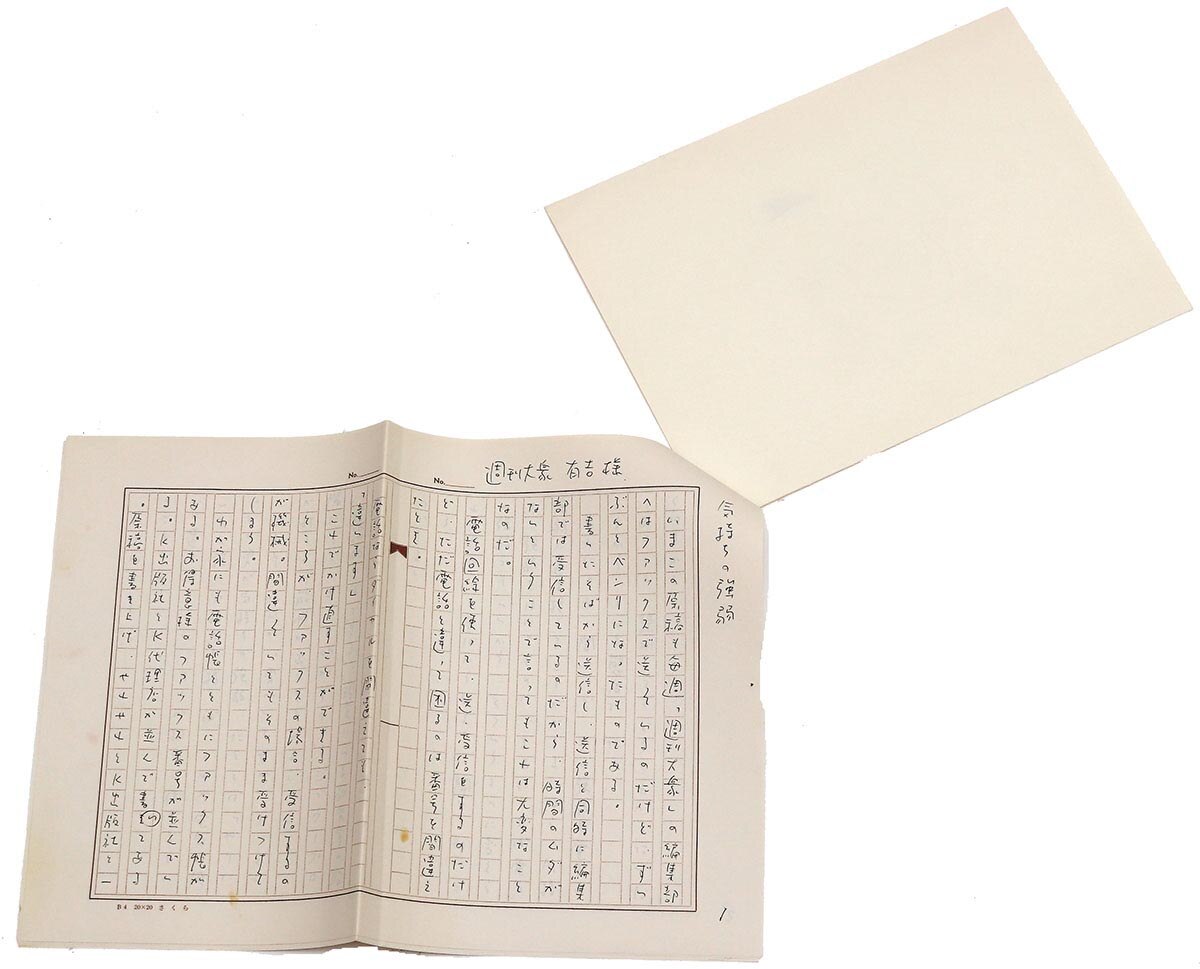 気持ちの強弱
週刊大衆 有吉様
No.
No.
いまこの原稿も毎週、週刊大衆への編集部
へはファックスで送っているのだけど、ずい
ぶんとベンリになったものである。
書いたそばから送信し、送信と同時に編集
部では受信しているのだから、時間のムダが
ないということで言ってもこれは大変なこと
なのだ。
電話回線を使って、送・受信をするのだけ
ど、ただ電話と違って困るのは番号を間違え
たとき。
電話ならダイヤルを間違えても
違います」
これでかけ直すことができる。
ところが、ファックスの場合、受信するの
が機械。間違えていてもそのまま受けつけて
しまう。
わが家にも電話帳とともにファックス帳が
ある。お得意様のファックス番号が並んでい
る。K出版社とK代理店が並んで書いてある
。原稿を書き上げ、サササとK出版社と一
B4 20×20 さくら